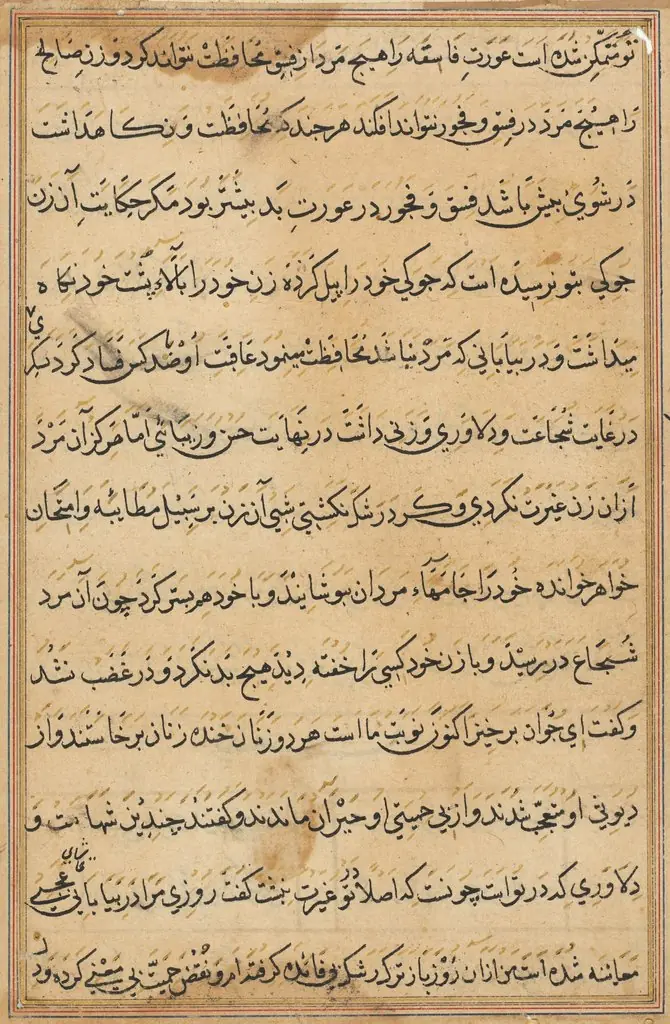 تو متمکن شده است عورت فاسقه را هیچ مرد از فسق محافظت نتواند کرد و زن صالح
را هیچ مرد در فسق و فجور نتواند افکند هر چند که محافظت و نکاهداشت
در شوی بیش باشد فسق و فجور در عورت بد بیشتر بود مکر حکایت آن زن
جوکی بتو نرسیده است که جوکی خود را پیل کرده زن خود را بالاء پشت خود نکاه
میداشت و در بیابانی که مرد نباشد محافظت مینمود عاقبت او ضد کس فساد کرد
در غایت شجاعت و دلاوری و زنی داشت در نهایت حسن و زیبائی اما هرکز آن مرد
از ان زن غیرت نکردی و کرد رشک نکشتی شبی آن زن بر سبیل مطایبه و امتحان
خواهر خوانده خود را جامهاء مردان بپوشانید و با خود هم بستر کرد چون آن مرد
شجاع در رسید و با زن خود کسی را خفته دید هیچ بد نکرد و در غضب نشد
و کفت ای جوان برخیز اکنون نوبت ما است هر دو زنان خنده زنان برخاستند و از
دیوثی او متعجب شدند و از بی حمیتی او حیران ماندند و کفتند چندین شهامت و
دلاوری که در تو است چونست که اصلا در تو غیرت نیست کفت روزی مرا در بیابانی عجبی
معاینه شده است من ازان روز باز ترک رشک بی فائده کرفته ام و نقض حمیت بی معنی کرده